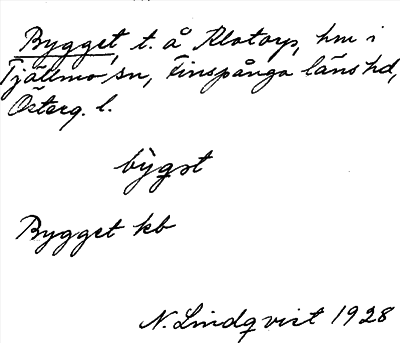 Bygget, t. å Klotorp, hm i
Tjällmo sn, Finspånga läns hd,
Österg. l.
bỳgst
Bygget kb
N. Lindqvist 1928